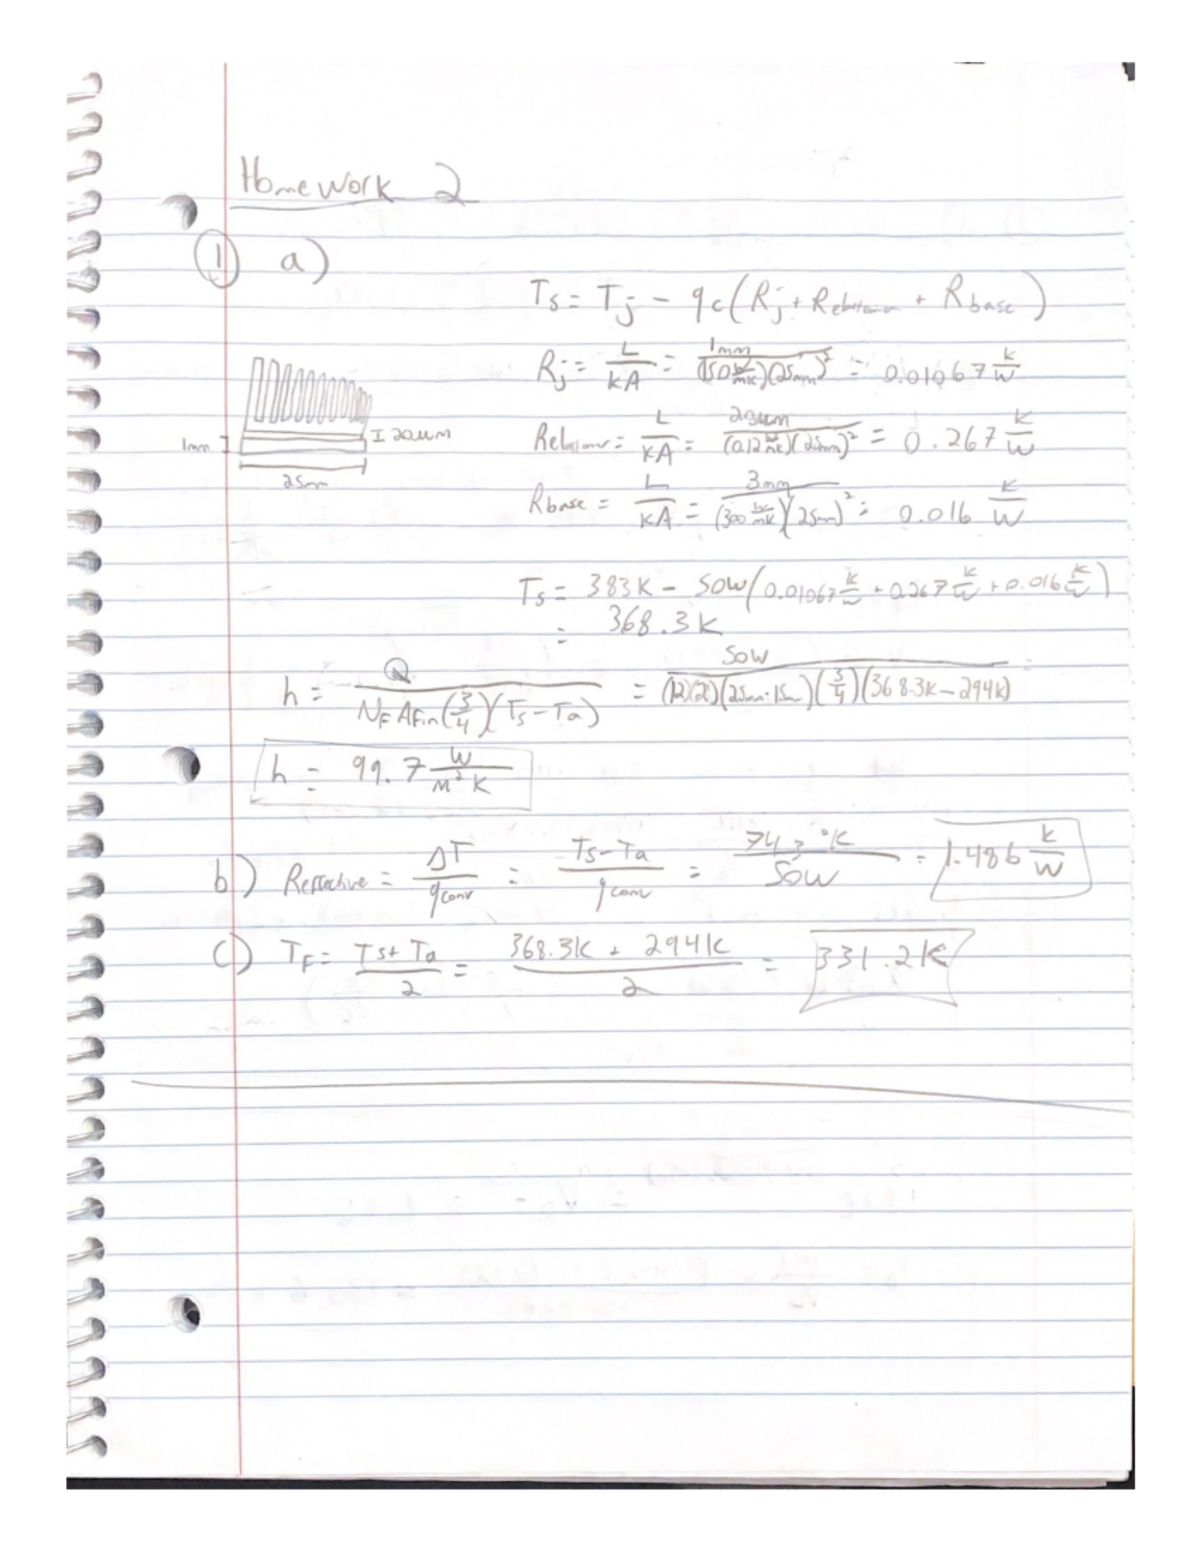 Homework 2
① a)
Ts = Tj - qc(Rj + Relastomer + Rbase)
Rj = L/kA = 1mm/((150 W/mK)(25mm)²) = 0.01067 K/W
1mm
I 20um
25mm
Relastomer = L/kA = 20um/((0.12 W/mK)(25mm)²) = 0.267 K/W
Rbase = L/kA = 3mm/((300 W/mK)(25mm)²) = 0.016 K/W
Ts = 383K - 50W(0.01067 K/W + 0.267 K/W + 0.016 K/W)
= 368.3K
h = Q/(NF AFin(3/4)(Ts-Ta)) = 50W/((12)(2)(25mm·15mm)(3/4)(368.3K-294K))
h = 99.7 W/m²K
b) Reffective = ΔT/qconv = Ts-Ta/qconv = 74.3 °K/50W = 1.486 K/W
c) TF = Ts+Ta/2 = 368.3K + 294K/2 = 331.2K